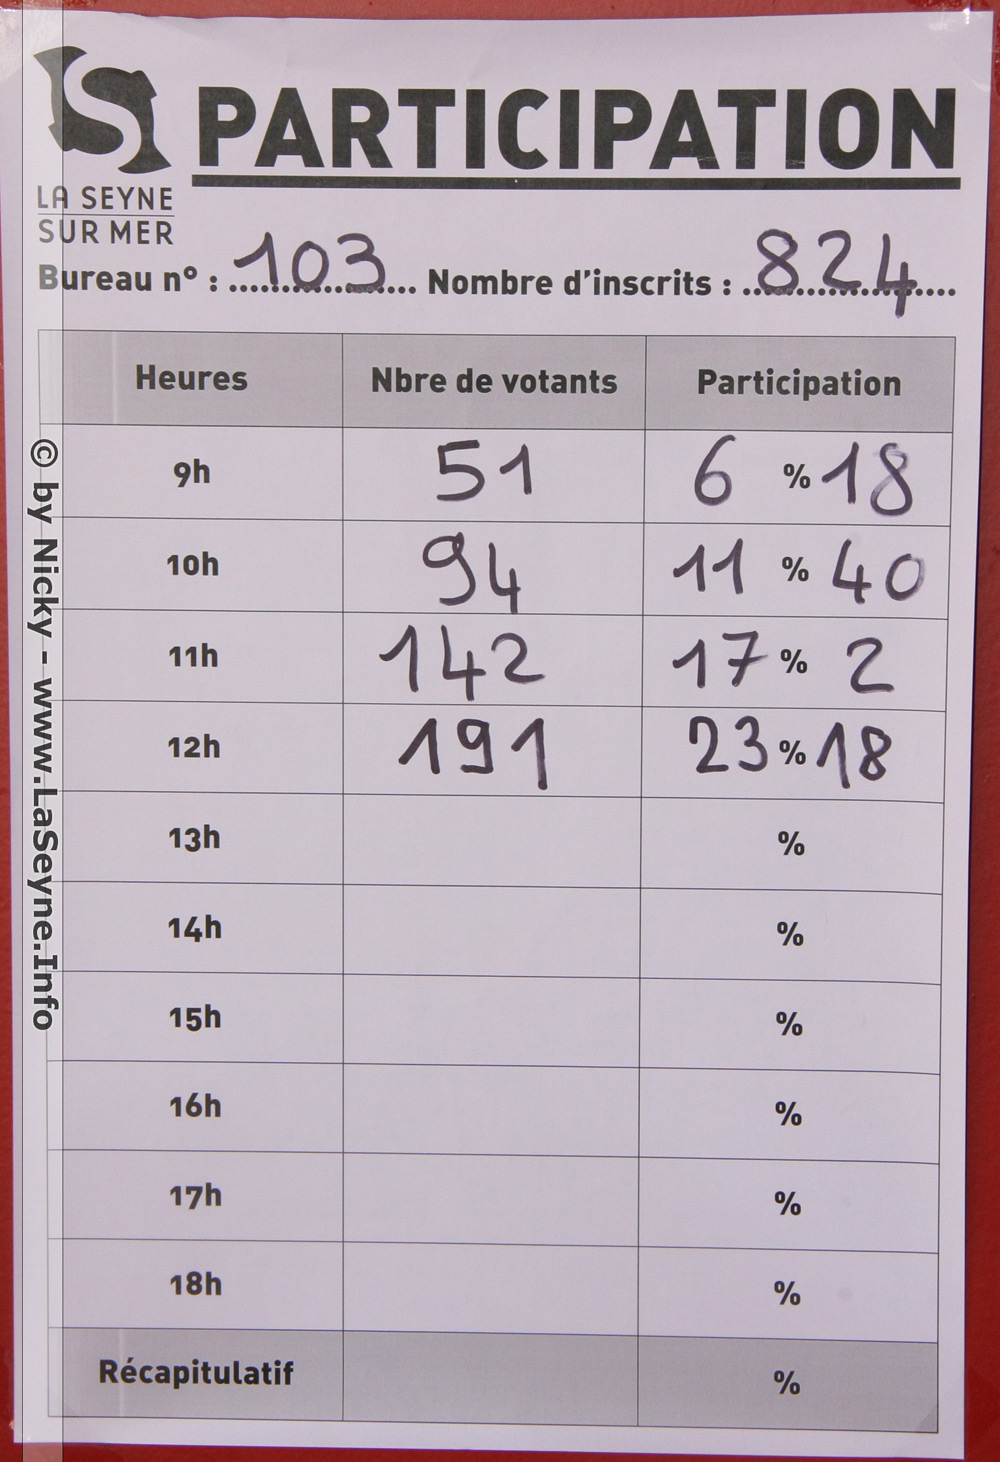 PARTICIPATION
LA SEYNE
SUR MER
Bureau n° : 103 Nombre d'inscrits : 824
Heures Nbre de votants Participation
9h 51 6 % 18
10h 94 11 % 40
11h 142 17 % 2
12h 191 23 % 18
13h %
14h %
15h %
16h %
17h %
18h %
Récapitulatif %
© by Nicky - www.LaSeyne.Info